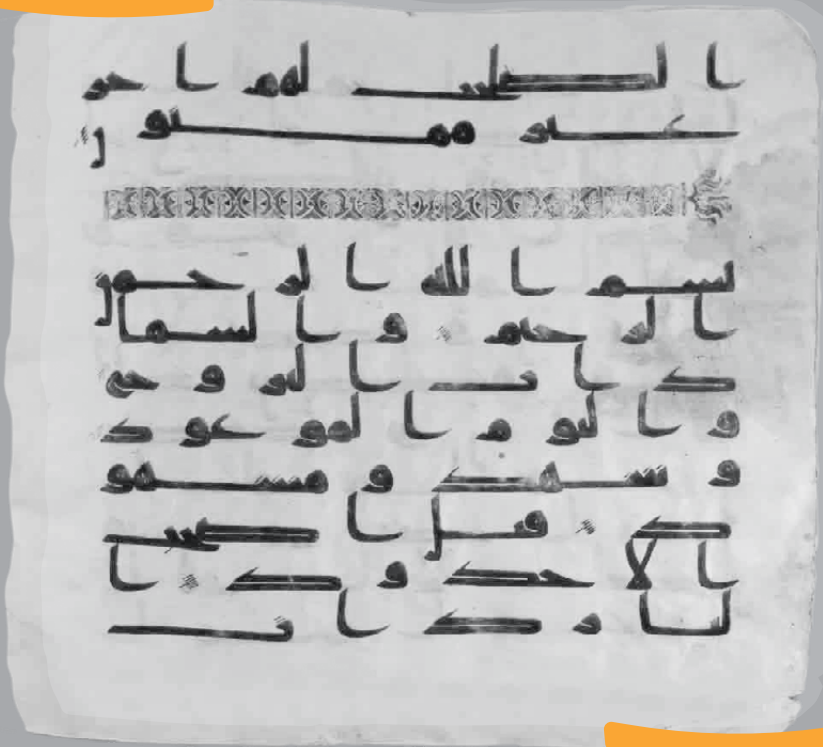 ا الصلحت لهم اجر
غير ممنون
بسم الله الرحمن
الرحيم والسما
ذات البروج
واليوم الموعود
وشهد ومشهو
د قتل اصحب
الاخدود ا
لنار ذات